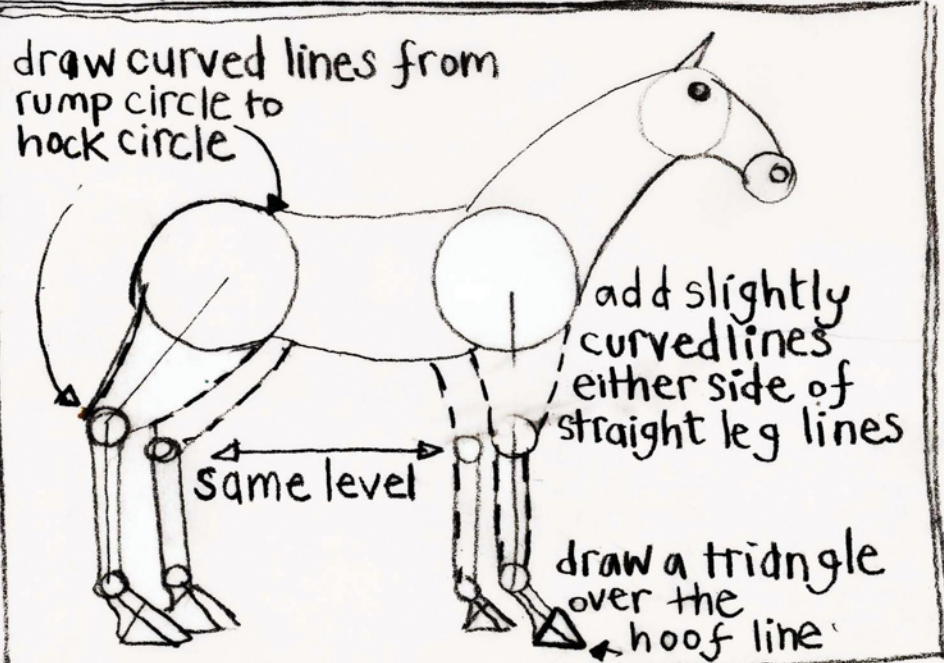 draw curved lines from
rump circle to
hock circle
add slightly
curved lines
either side of
straight leg lines
same level
draw a triangle
over the
hoof line